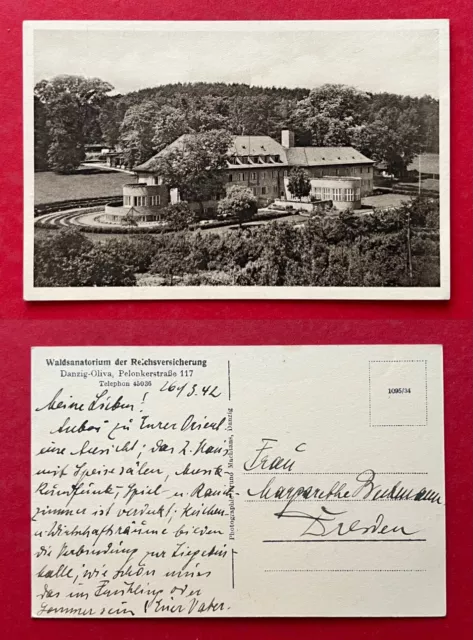 Waldsanatorium der Reichsversicherung
Danzig-Oliva, Pelonkerstraße 117
Telephon 45036
26/3.42
Meine Lieben!
Anbei zu Eurer Orient
eine Ansicht; das
mit Speisesälen, Musik
Rundfunk, Spiel- u.
zimmer ist verdeckt; Küchen
u. Wirtschaftsräume bilden
die Verbindung zur Liege
halle, wie schön muss
das im Frühling oder
Sommer sein! Euer Vater.
Photographie Danzig
1095/34
Frau
Margarethe
Dresden